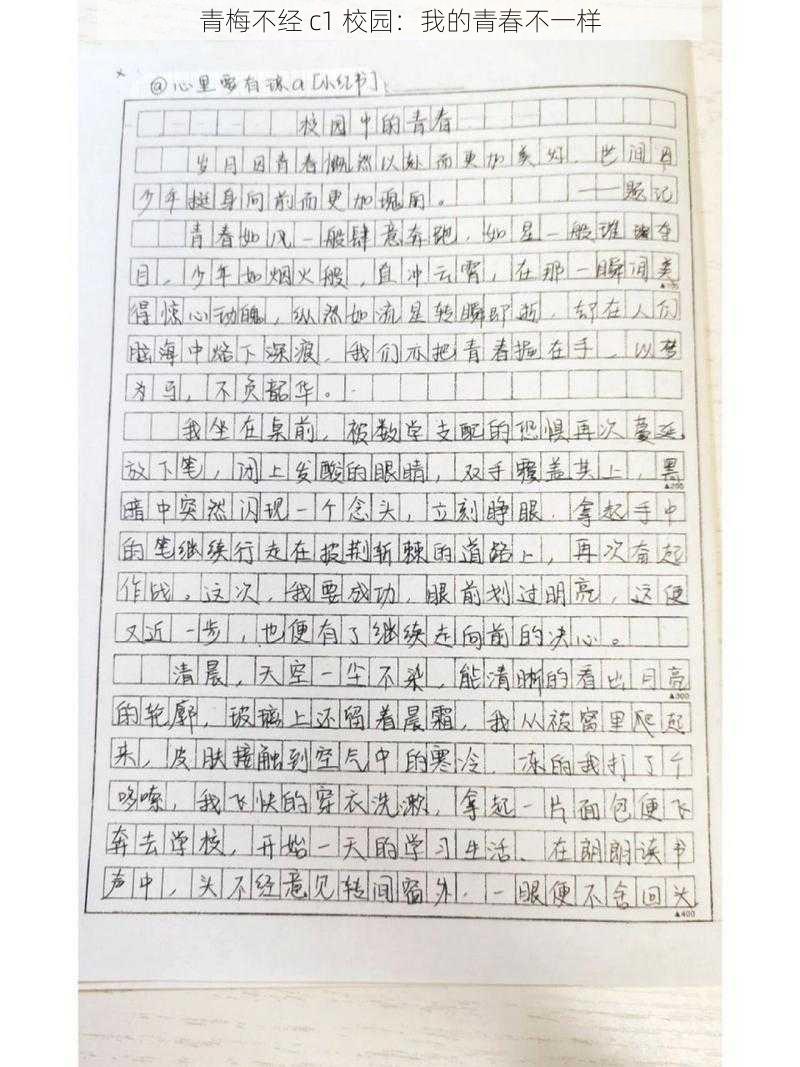 青梅不经 c1 校园：我的青春不一样
@心里要有琼a[小红书]
校园中的青春
岁月因青春慨然以赴而更加美好，世间因
少年挺身向前而更加瑰丽。——题记
青春如风一般肆意奔跑，如星一般璀璨夺
目，少年如烟火般，直冲云霄，在那一瞬间美
得惊心动魄，纵然如流星转瞬即逝，却在人们
脑海中烙下深痕，我们亦把青春握在手，以梦
为马，不负韶华。
我坐在桌前，被数学支配的恐惧再次蔓延
放下笔，闭上发酸的眼睛，双手覆盖其上，黑
▲200
暗中突然闪现一个念头，立刻睁眼，拿起手中
的笔继续行走在披荆斩棘的道路上，再次奋起
作战。这次，我要成功，眼前划过明亮，这便
又近一步，也便有了继续走向前的决心。
清晨，天空一尘不染，能清晰的看出月亮
▲300
的轮廓，玻璃上还留着晨霜，我从被窝里爬起
来，皮肤接触到空气中的寒冷，冻的我打了个
哆嗦，我飞快的穿衣洗漱，拿起一片面包便飞
奔去学校，开始一天的学习生活，在朗朗读书
声中，头不经意见转间窗外，一眼便不舍回头
▲400